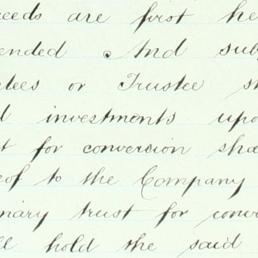 eeds are first he
ended. And sub
tees or Trustee s
d investments upo
t for conversion sha
eof to the Company
onary trust for conver
ll hold the said